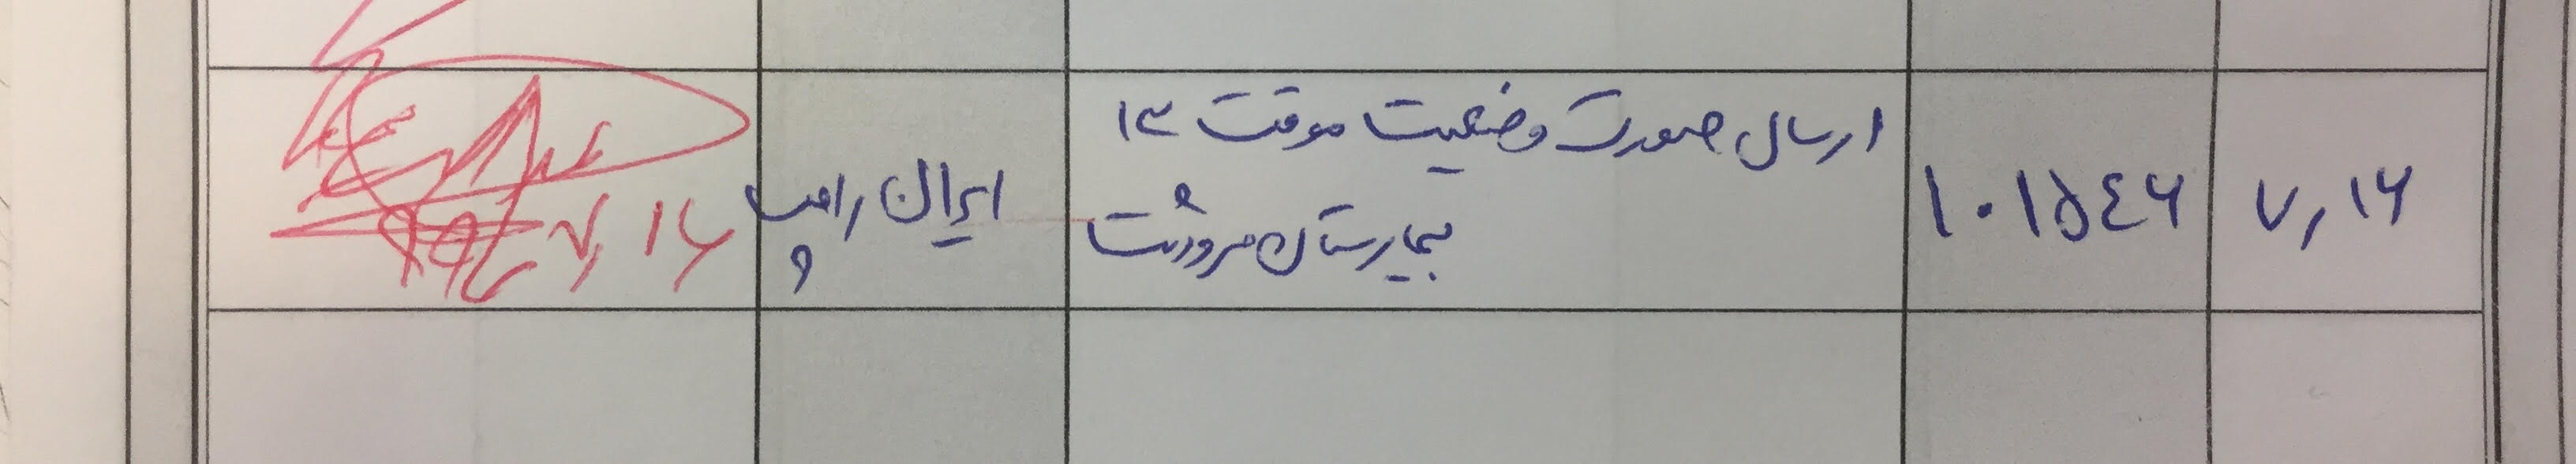 ۷٫۱۶
۱۰۱۵۴۶
ارسال صورت وضعیت موقت ۱۳
بیمارستان مرودشت
ایران رامپ
۷٫۱۶